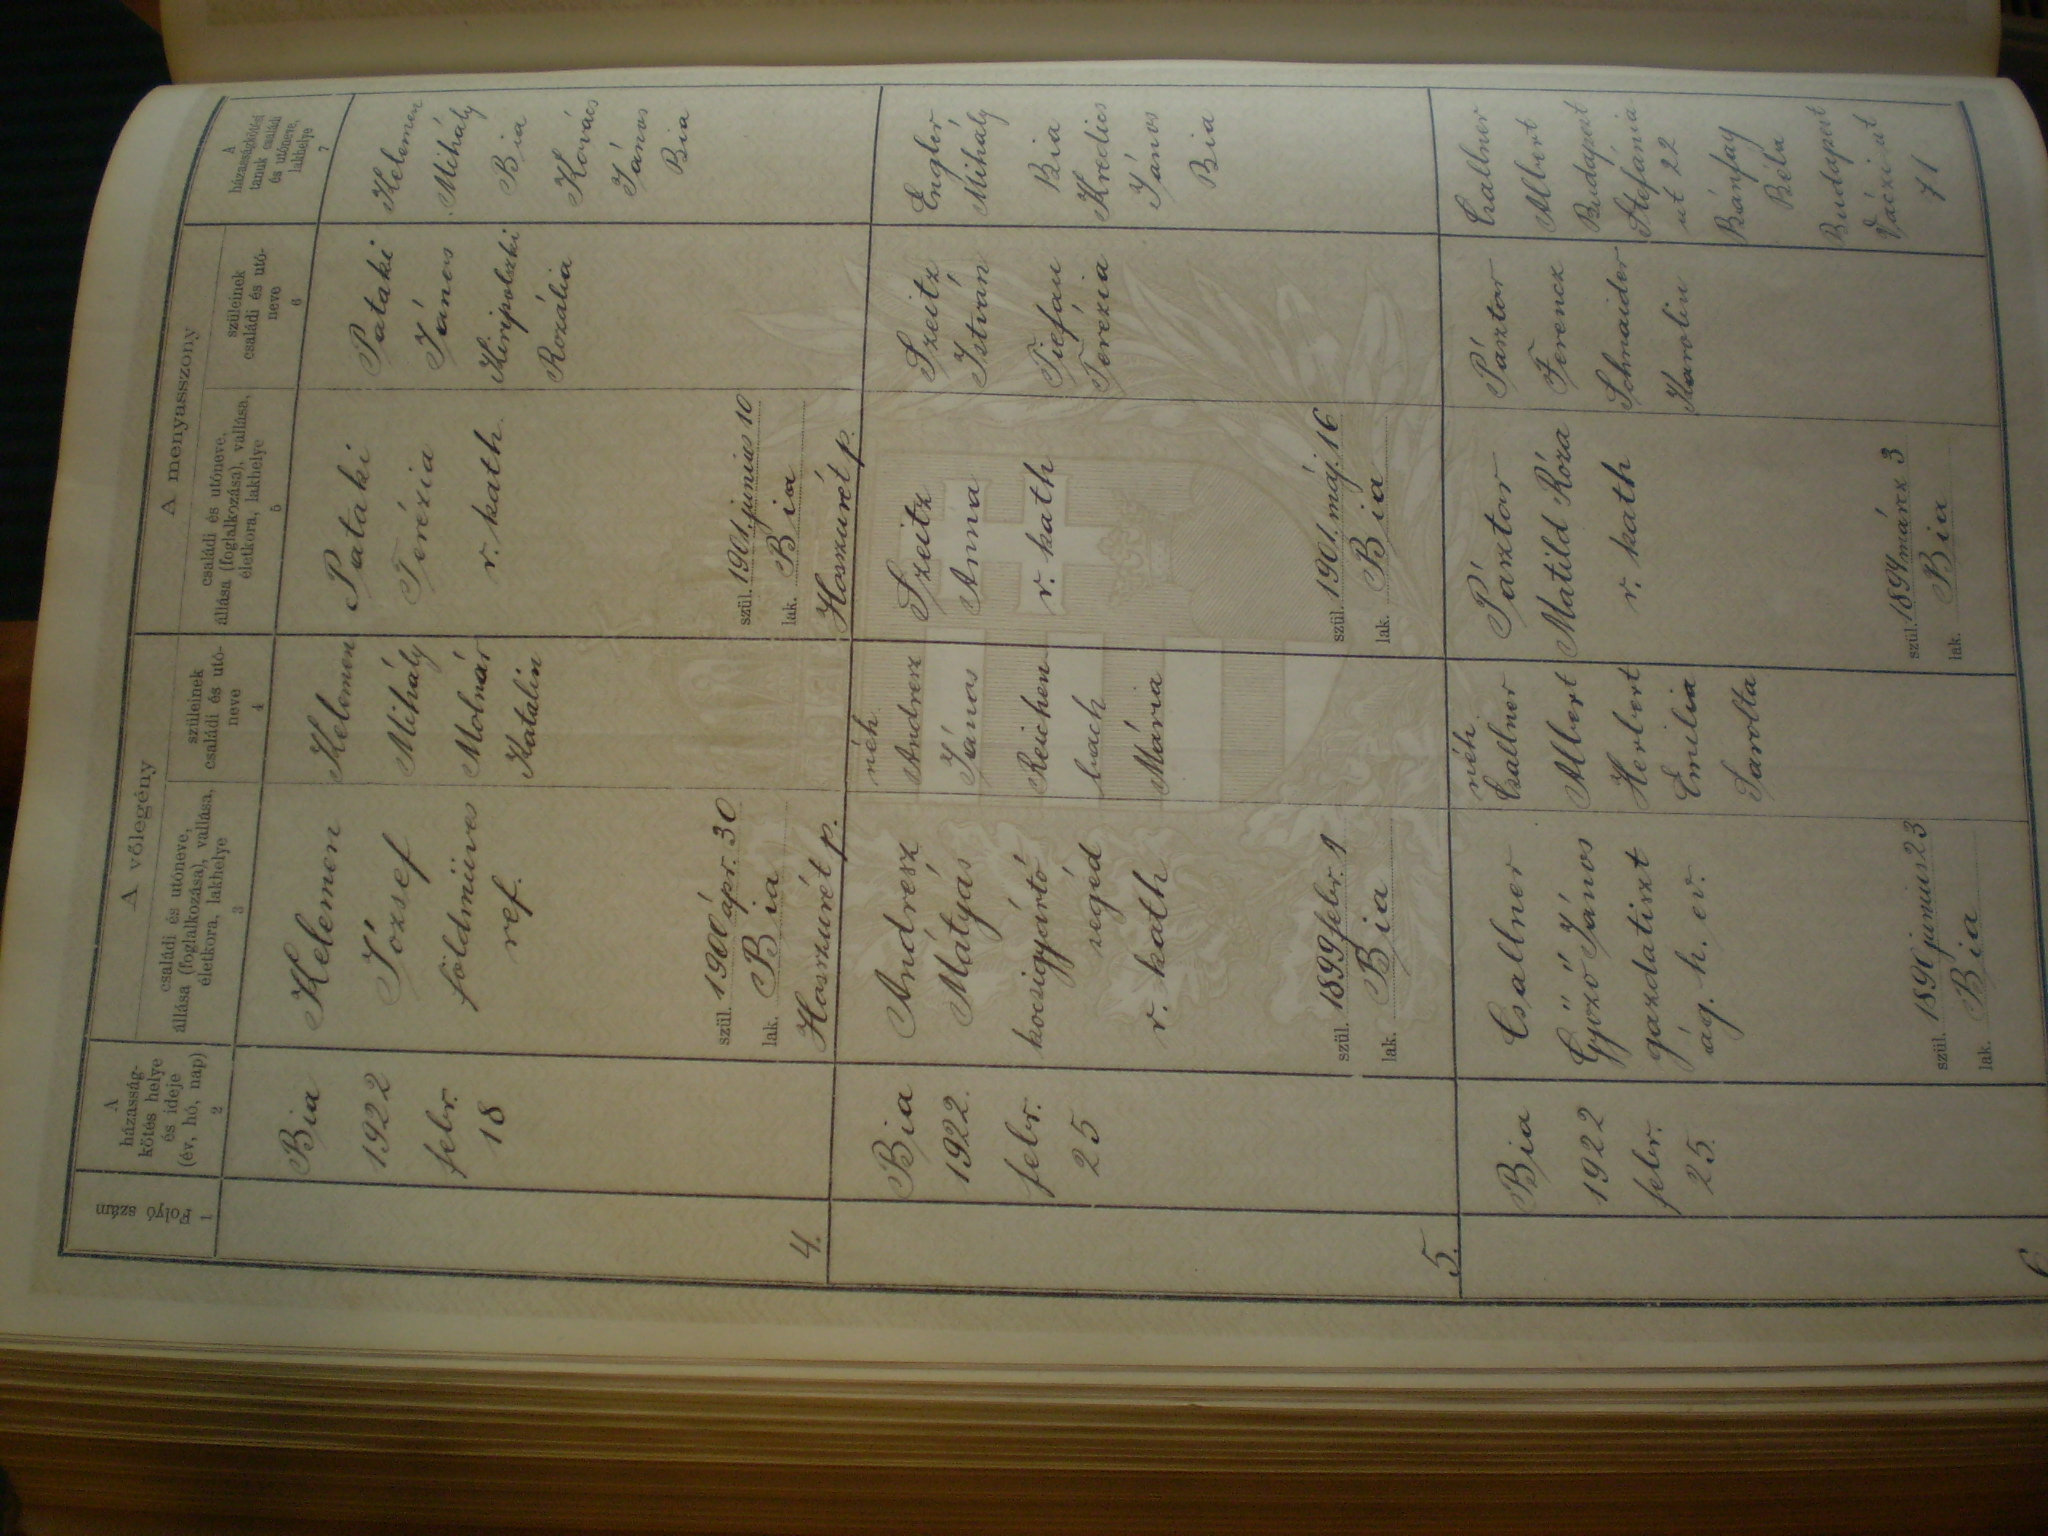 A vőlegény
A menyasszony
Folyó szám
1
A
házasság-
kötés helye
és ideje
(év, hó, nap)
2
családi és utóneve,
állása (foglalkozása), vallása,
életkora, lakhelye
3
szüleinek
családi és utó-
neve
4
családi és utóneve,
állása (foglalkozása), vallása,
életkora, lakhelye
5
szüleinek
családi és utó-
neve
6
A
házasságkötési
tanuk családi
és utóneve,
lakhelye
7
4.
Bia
1922
febr.
18
Kelemen
József
földműves
ref.
szül. 1900 ápr. 30
lak. Bia
Hosszurét p.
Kelemen
Mihály
Molnár
Katalin
Pataki
Terézia
r. kath.
szül. 1901. junius 10
lak. Bia
Hosszurét p.
Pataki
János
Rozália
Kelemen
Mihály
Bia
Kovács
János
Bia
5.
Bia
1922.
febr.
25
Andresz
Mátyás
kocsigyártó
segéd
r. kath
szül. 1899 febr. 9
lak. Bia
néh.
Andresz
János
Reichen
bach
Mária
Szeitz
Anna
r. kath
szül. 1901. máj. 16
lak. Bia
Szeitz
István
Tiefau
Terézia
Engler
Mihály
Bia
Kredics
János
Bia
6
Bia
1922
febr.
25.
Csallner
Győző János
gazdatiszt
ág. h. ev.
szül. 1890 junius 23
lak. Bia
néh.
Csallner
Albert
Herbert
Emilia
Sarolta
Pásztor
Matild Róza
r. kath
szül. 1894 márcz 3
lak. Bia
Pásztor
Ferencz
Schnaider
Karolin
Csallner
Albert
Budapest
Stefánia-
ut 22
Bánfay
Béla
Budapest
Váczi-ut
71